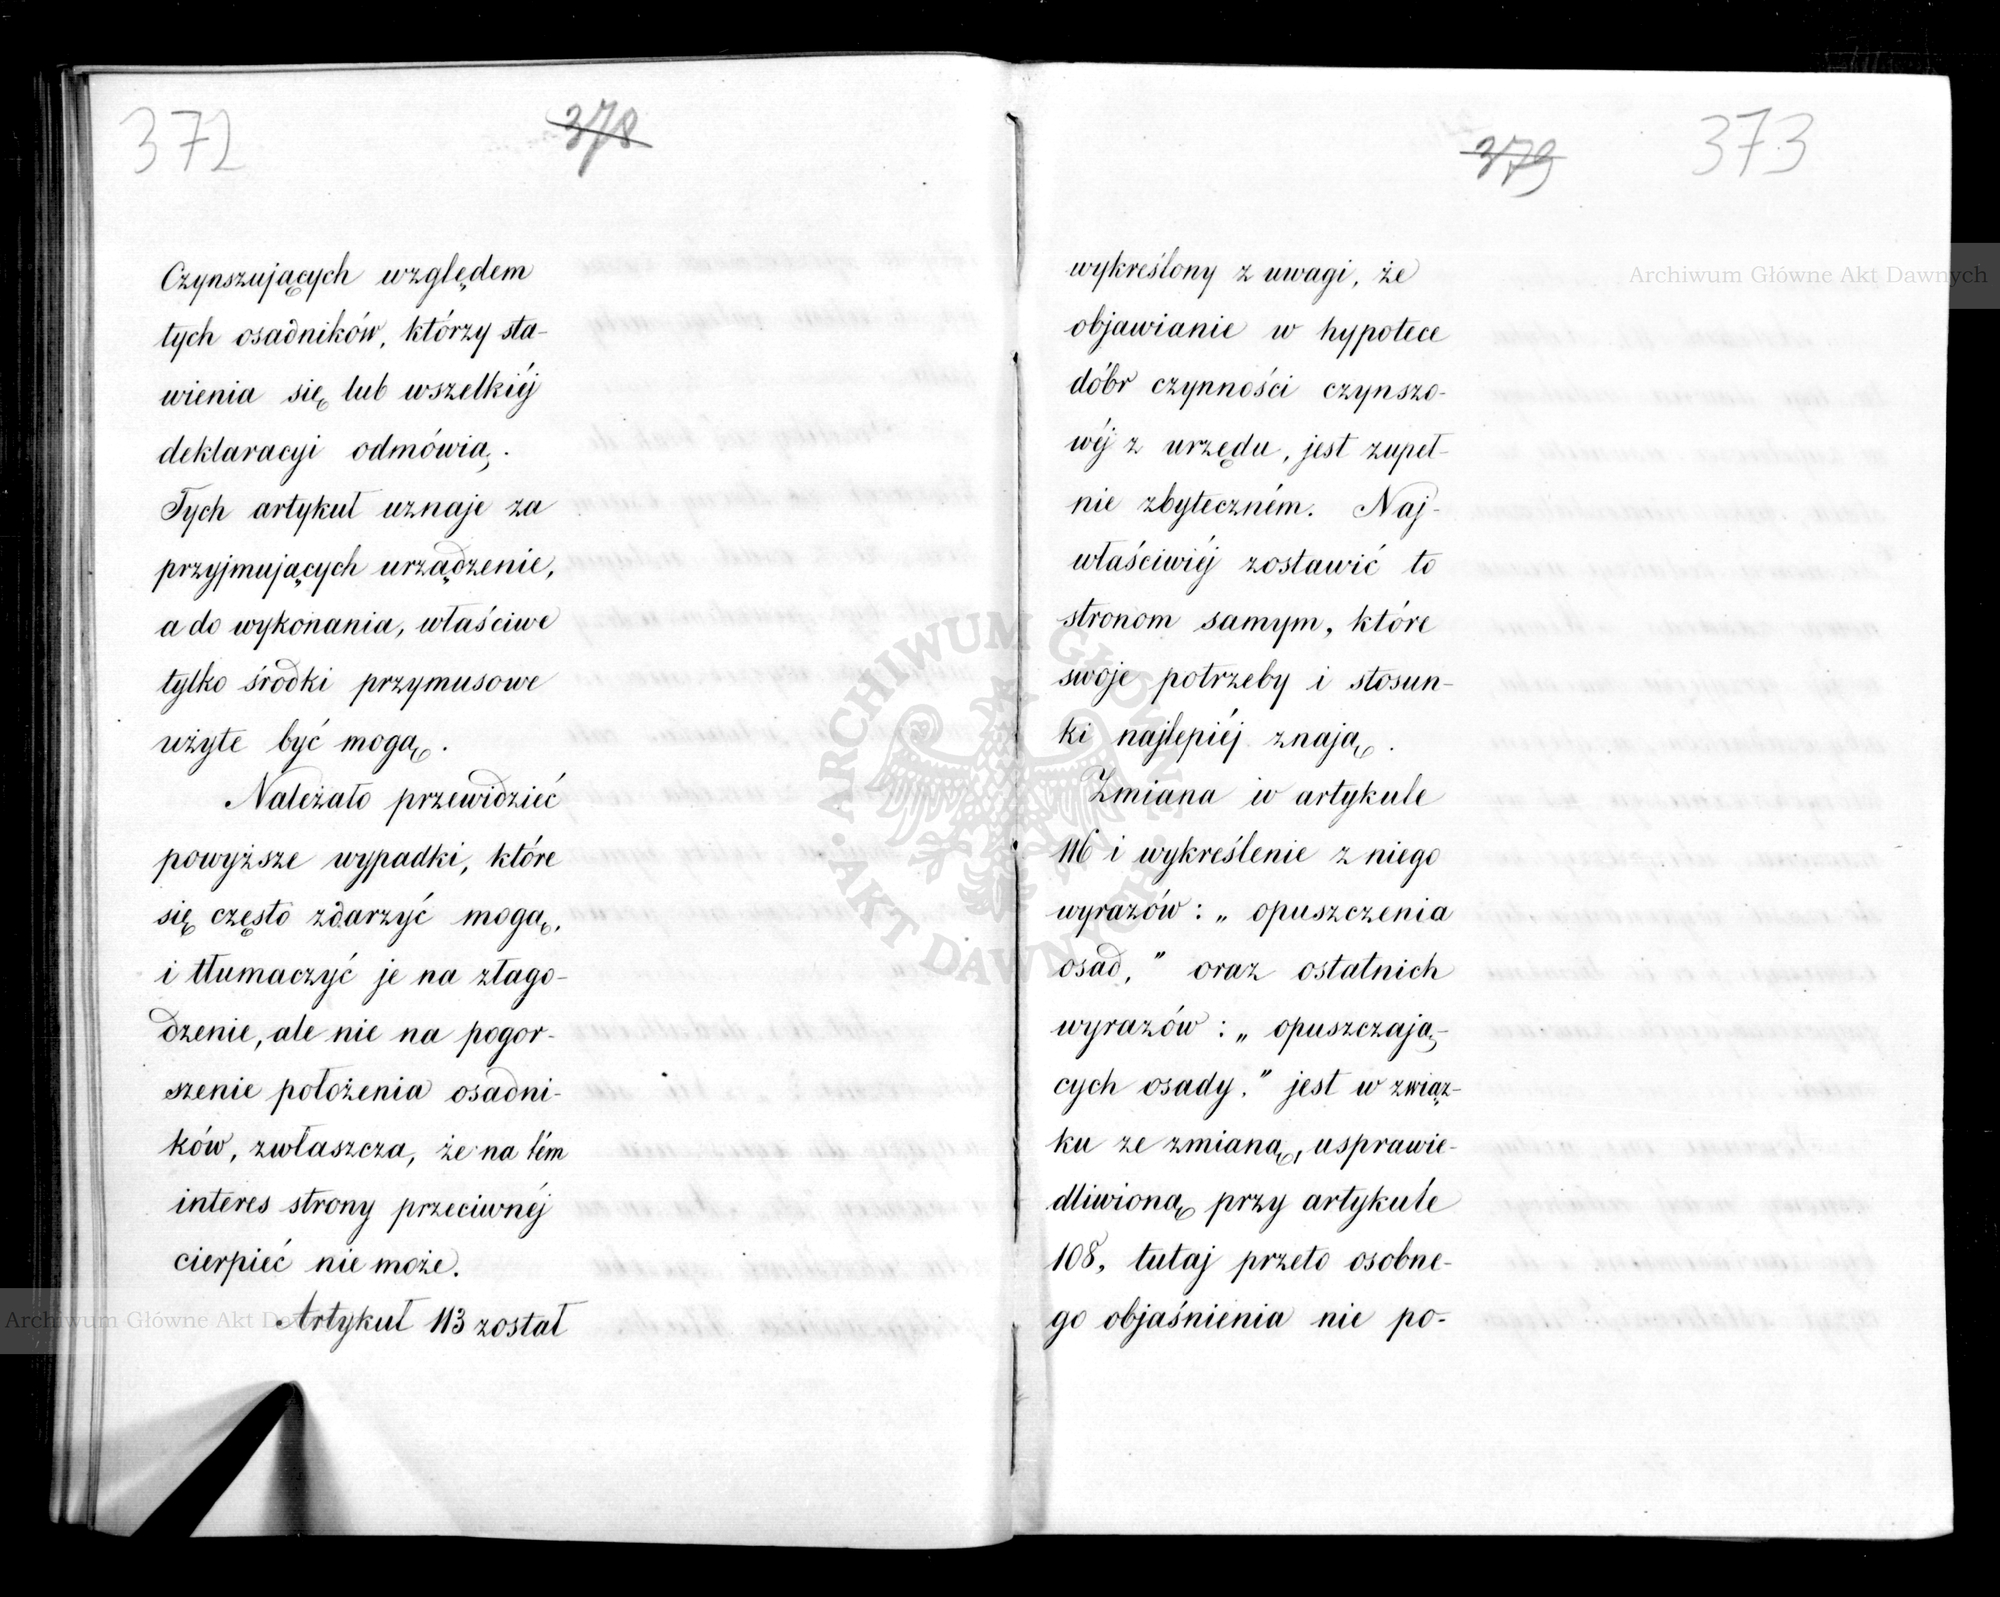 372
378
Czynszujących względem
tych osadników, którzy sta-
wienia się lub wszelkiéj
deklaracyi odmówią.
Tych artykuł uznaje za
przyjmujących urządzenie,
a do wykonania, właściwe
tylko środki przymusowe
użyte być mogą.
Należało przewidzieć
powyższe wypadki, które
się często zdarzyć mogą,
i tłumaczyć je na złago-
dzenie, ale nie na pogor-
szenie położenia osadni-
ków, zwłaszcza, że na tém
interes strony przeciwnéj
cierpieć nie może.
Artykuł 113 został
379
373
wykreślony z uwagi, że
objawianie w hypotece
dóbr czynności czynszo-
wéj z urzędu, jest zupeł-
nie zbyteczném. Naj-
właściwiéj zostawić to
stronom samym, które
swoje potrzeby i stosun-
ki najlepiéj znają.
Zmiana w artykule
116 i wykreślenie z niego
wyrazów: „opuszczenia
osad," oraz ostatnich
wyrazów: „opuszczają-
cych osady." jest w związ-
ku ze zmianą, usprawie-
dliwioną przy artykule
108, tutaj przeto osobne-
go objaśnienia nie po-
Archiwum Główne Akt Dawnych
Archiwum Główne Akt Dawnych
ARCHIWUM GŁÓWNE
AKT DAWNYCH